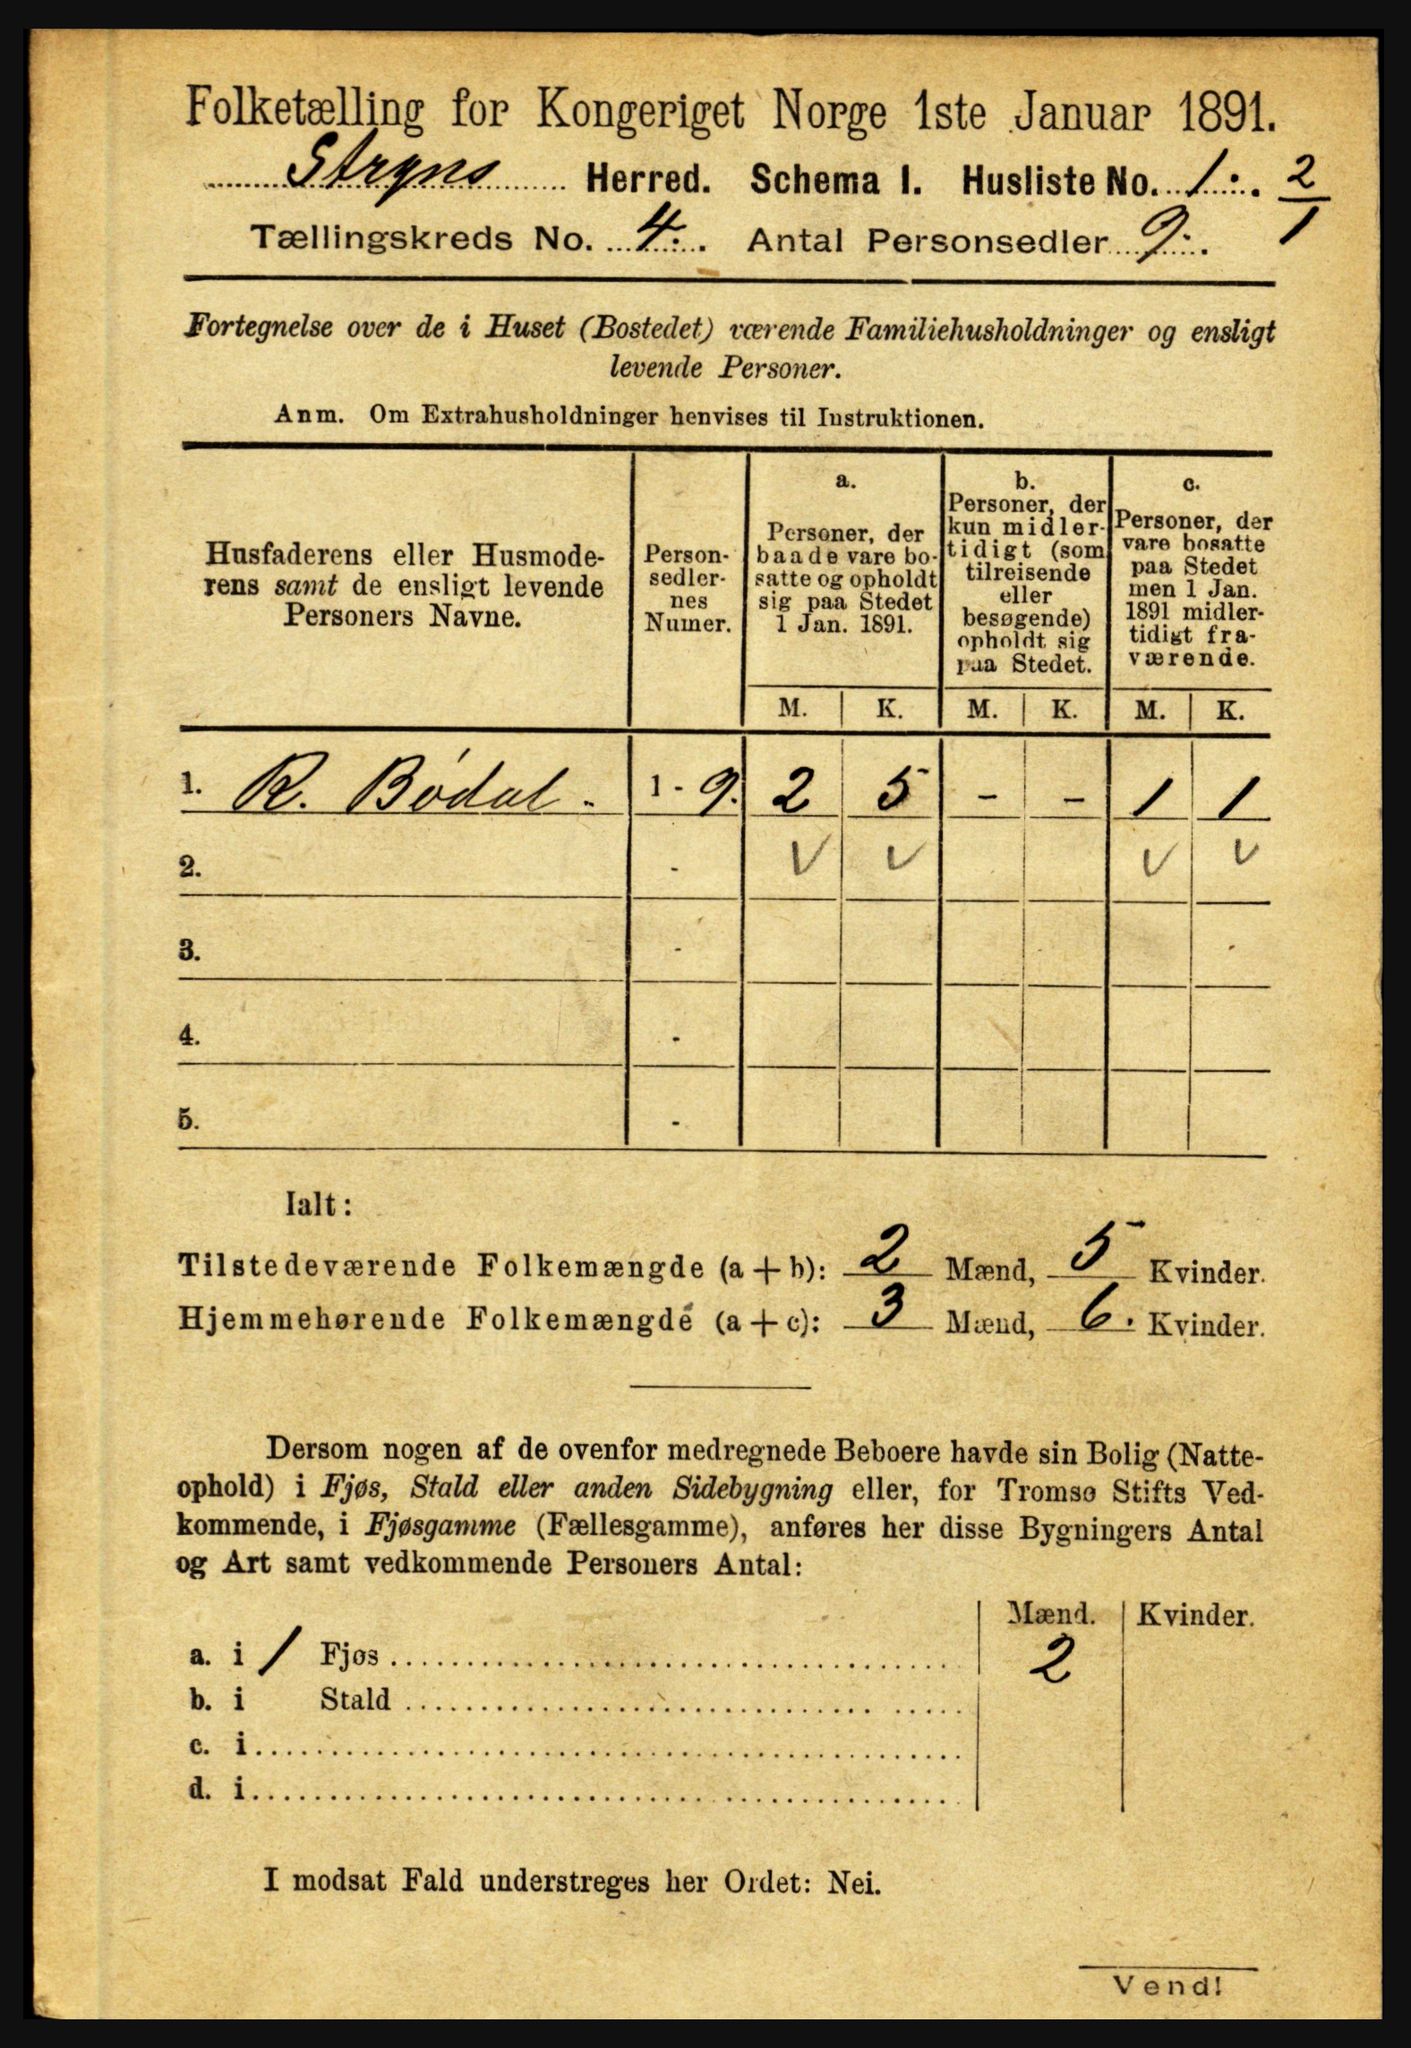 Folketælling for Kongeriget Norge 1ste Januar 1891.
Stryns Herred. Schema I. Husliste No. 1. 2/1
Tællingskreds No. 4. Antal Personsedler 9.
Fortegnelse over de i Huset (Bostedet) værende Familiehusholdninger og ensligt
levende Personer.
Anm. Om Extrahusholdninger henvises til Instruktionen.
Husfaderens eller Husmode-
rens samt de ensligt levende
Personers Navne.
Person-
sedler-
nes
Numer.
a.
Personer, der
baade vare bo-
satte og opholdt
sig paa Stedet
1 Jan. 1891.
b.
Personer, der
kun midler-
tidigt (som
tilreisende
eller
besøgende)
opholdt sig
paa Stedet.
c.
Personer, der
vare bosatte
paa Stedet
men 1 Jan.
1891 midler-
tidigt fra-
værende.
M. K. M. K. M. K.
1. R. Bødal. 1 - 9. 2 5 - - 1 1
2. - V V V V
3. -
4. -
5. -
Ialt:
Tilstedeværende Folkemængde (a + b): 2 Mænd, 5 Kvinder.
Hjemmehørende Folkemængde (a + c): 3 Mænd, 6. Kvinder.
Dersom nogen af de ovenfor medregnede Beboere havde sin Bolig (Natte-
ophold) i Fjøs, Stald eller anden Sidebygning eller, for Tromsø Stifts Ved-
kommende, i Fjøsgamme (Fællesgamme), anføres her disse Bygningers Antal
og Art samt vedkommende Personers Antal:
Mænd. Kvinder.
a. i 1 Fjøs 2
b. i Stald
c. i
d. i
I modsat Fald understreges her Ordet: Nei.
Vend!